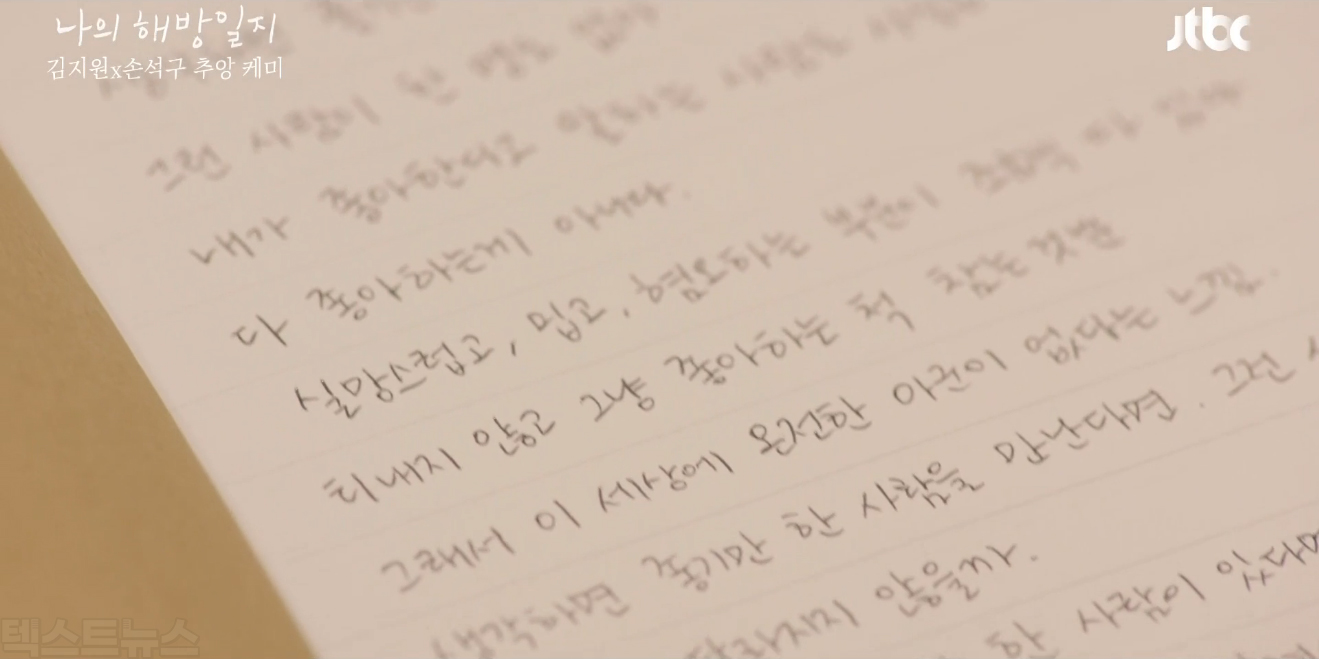 나의 해방일지
김지원x손석구 추앙 케미
jtbc
그런 사람이 한 명도 없다
내가 좋아한다고 말하는 사람도
다 좋아하는게 아니다.
실망스럽고, 밉고, 혐오하는 부분이 조금씩 다 있다
티내지 않고 그냥 좋아하는 척 참는 것일 뿐
그래서 이 세상에 온전한 아군이 없다는 느낌.
생각하면 좋기만 한 사람을 만난다면. 그런
않을까.
한 사람이 있다면
텍스트뉴스